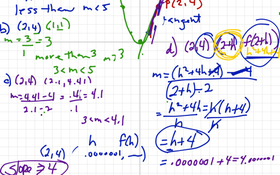 less than m<5
b) (2,4) (1,1)
m = 3/1 = 3
more than 3 m>3
3<m<5
c) (2,4) (2.1, 4.41)
m = 4.41-4/2.1-2 = .41/.1 = 4.1
3<m<4.1
h f(h)
(2,4) .0000001,
slope ≈ 4
P(2,4)
tangent
d) (2,4) (2+h, f(2+h))
h²+4h+4
m = (h²+4h+4)-4
(2+h)-2
h²+4h/h = h(h+4)/h
= h+4
= .0000001+4=4.0000001